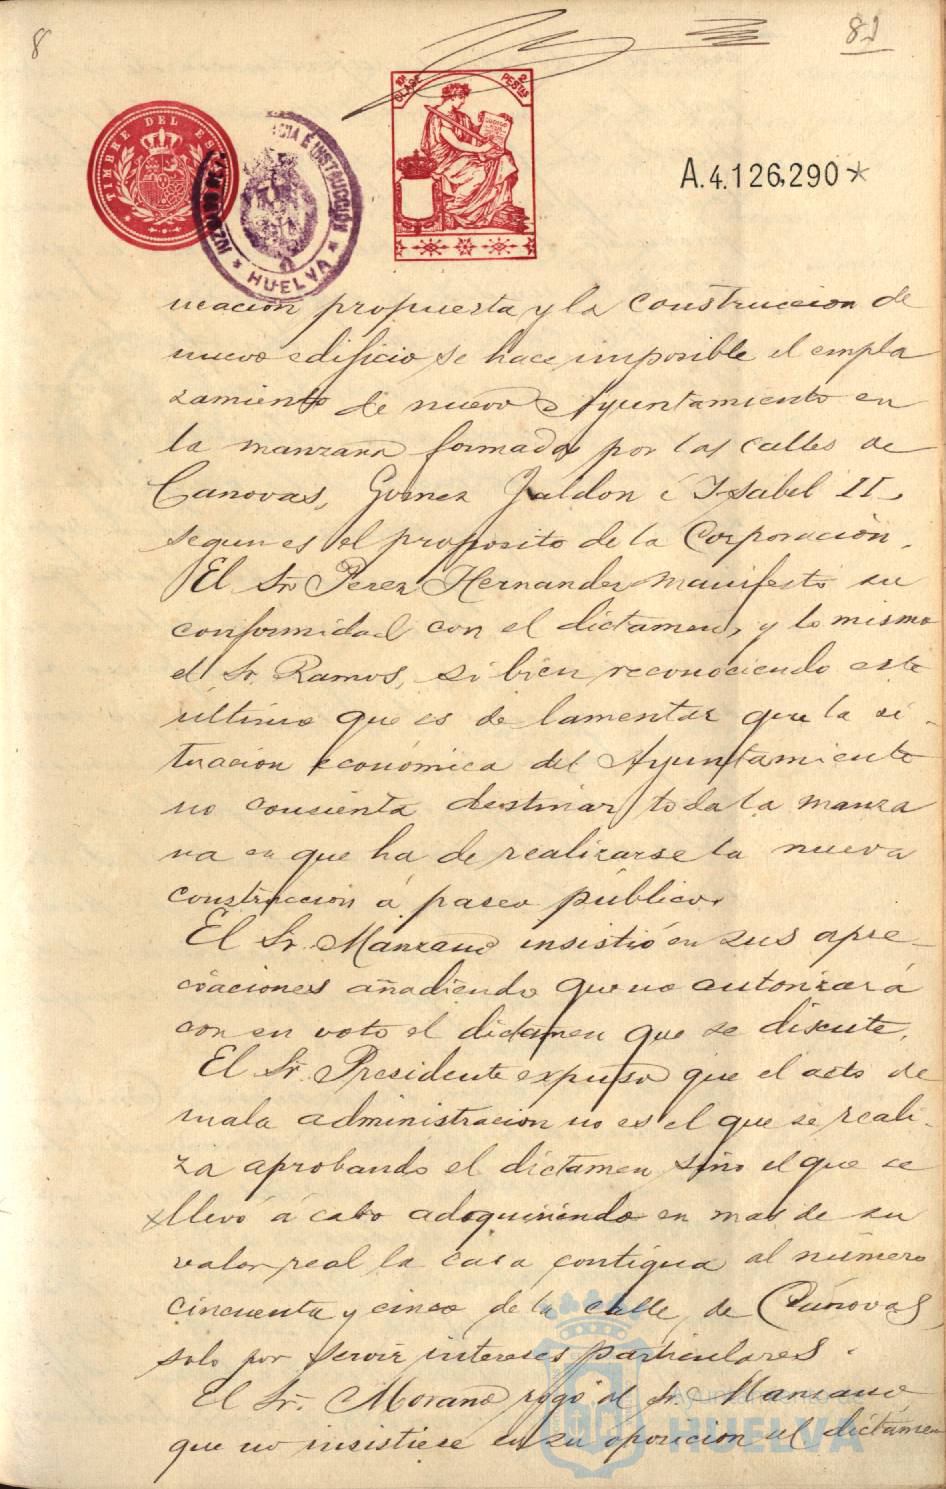 8
81
TIMBRE DEL ES
IA E INSTRUCCIÓN
HUELVA
10ª CLASE 2 PESTAS
A.4.126,290*
ucación propuesta y la construccion de
nuevo edificio se hace imposible el empla
zamiento de nuevo Ayuntamiento en
la manzana formada por las calles de
Canovas, Gomez Jaldon é Isabel II,
segun es el proposito de la Corporación.
El Sr. Perez Hernandez manifestó su
conformidad con el dictamen, y lo mismo
el Sr. Ramos, si bien reconociendo este
último que es de lamentar que la si-
tuacion económica del Ayuntamiento
no consienta destinar toda la manza
na en que ha de realizarse la nueva
construccion á paseo público.
El Sr. Manzano insistió en sus apre-
ciaciones añadiendo que no autorizará
con su voto el dictamen que se discute.
El Sr. Presidente expuso que el acto de
mala administracion no es el que se reali-
za aprobando el dictamen sino el que se
llevó á cabo adoquiriendo en mas de su
valor real la casa contigua al número
cincuenta y cinco de la calle de Cánovas,
solo por servir intereses particulares.
El Sr. Morano rogó al Sr. Manzano
que no insistiese en su oposicion al dictamen
Ayuntamiento de
HUELVA